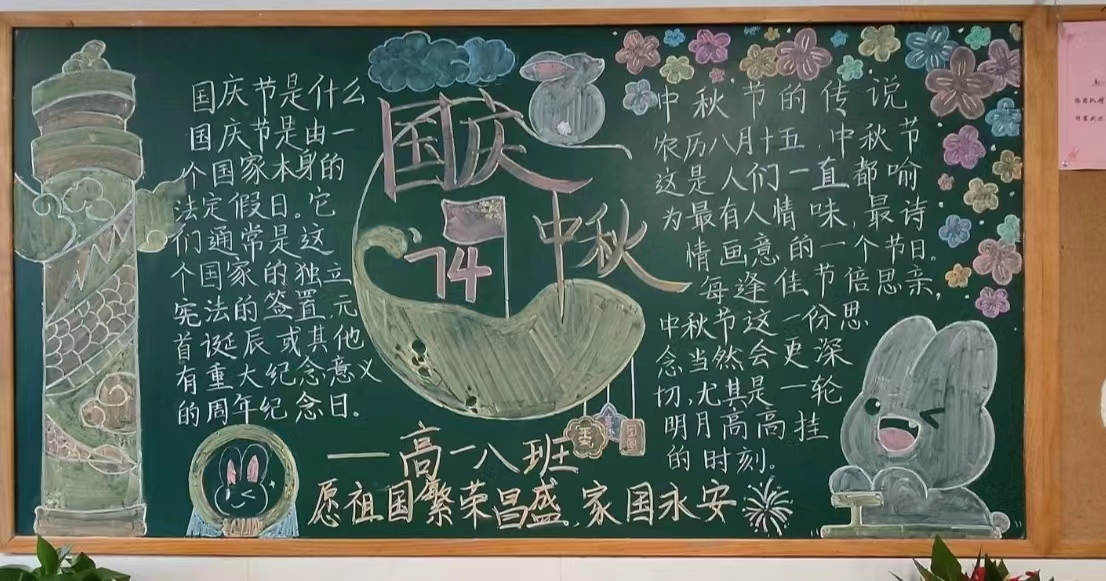 国庆节是什么
国庆节是由一
个国家本身的
法定假日。它
们通常是这
个国家的独立,
宪法的签置,元
首诞辰或其他
有重大纪念意义
的周年纪念日。
国庆
74
中秋
中秋节的传说
农历八月十五,中秋节
这是人们一直都喻
为最有人情味,最诗
情画意的一个节日。
每逢佳节倍思亲,
中秋节这一份思
念当然会更深
切,尤其是一轮
明月高高挂
的时刻。
一高一八班
愿祖国繁荣昌盛,家国永安